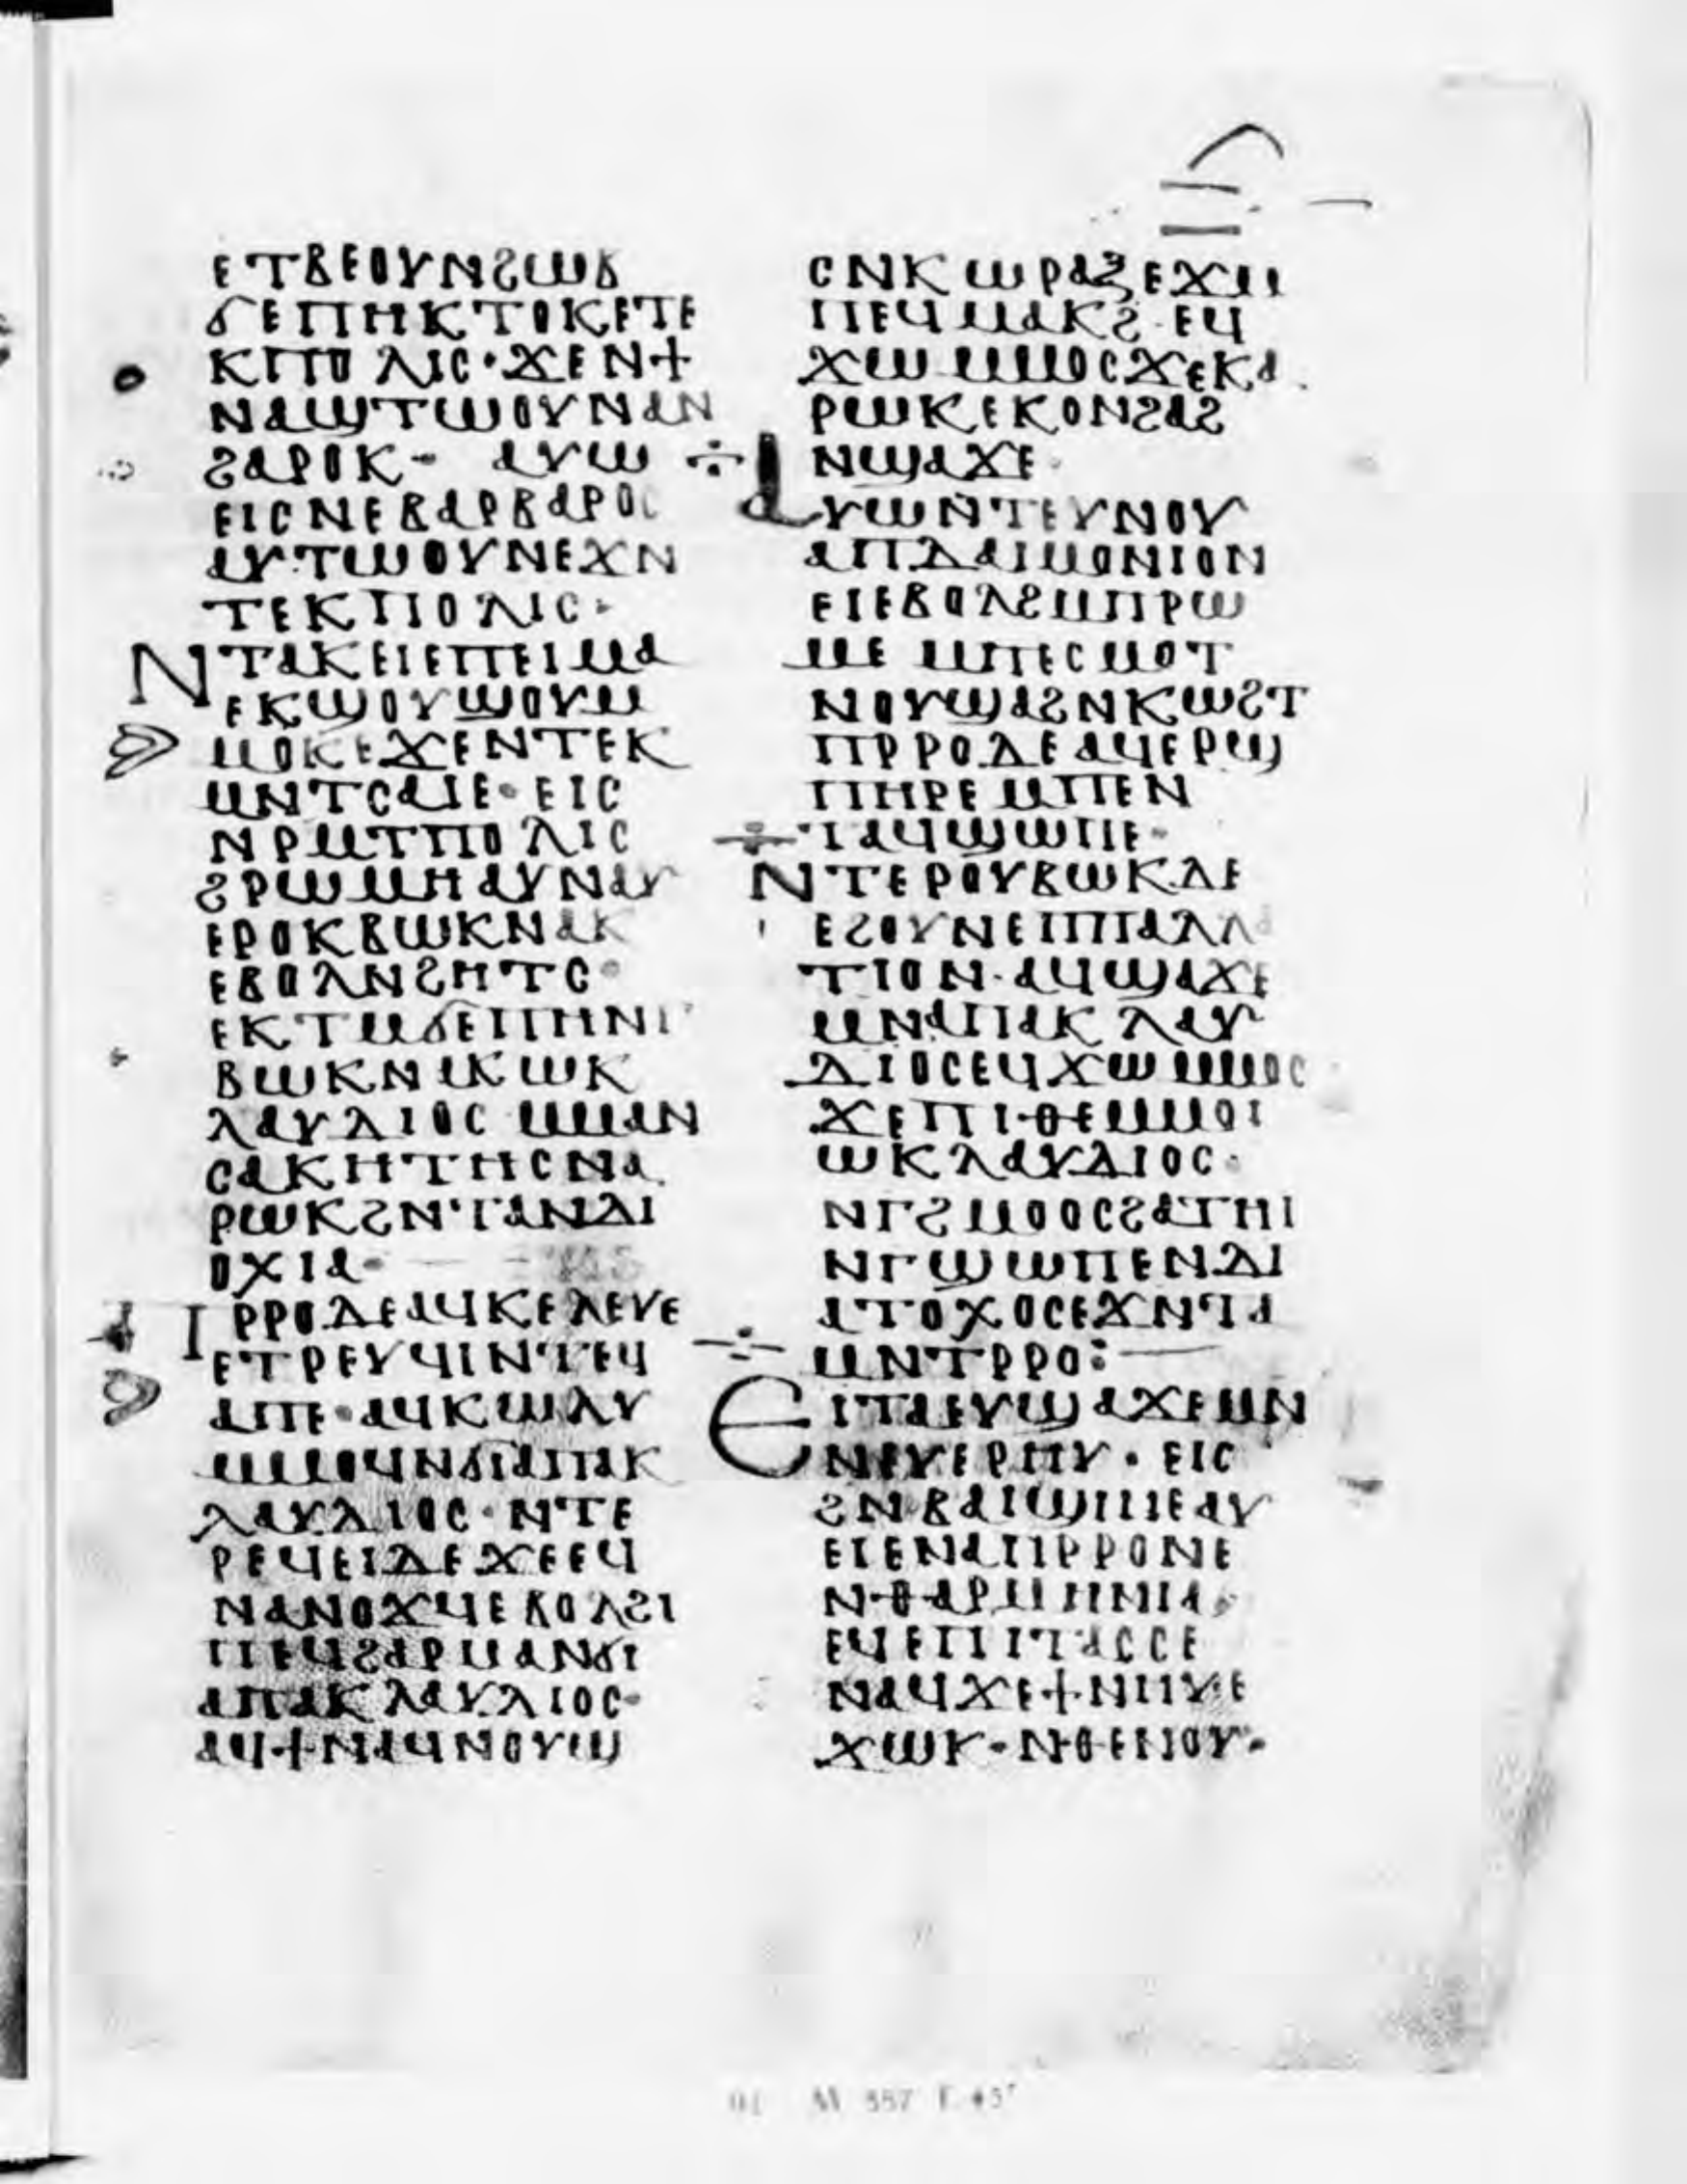 ⲉⲧⲃⲉⲟⲩⲛϩⲱⲃ
ϭⲉⲡⲏⲕⲧⲟⲕⲉⲧⲉ
ⲕⲡⲟⲗⲓⲥ·ϫⲉⲛϯ
ⲛⲁϣⲧⲱⲟⲩⲛⲁⲛ
ϩⲁⲣⲟⲕ- ⲁⲩⲱ
ⲉⲓⲥⲛⲉⲃⲁⲣⲃⲁⲣⲟⲥ
ⲁⲩⲧⲱⲟⲩⲛⲉϫⲛ
ⲧⲉⲕⲡⲟⲗⲓⲥ·
ⲛⲧⲁⲕⲉⲓⲉⲡⲉⲓⲙⲁ
ⲉⲕϣⲟⲩϣⲟⲩⲙ
ⲙⲟⲕⲉϫⲉⲛⲧⲉⲕ
ⲙⲛⲧⲥⲁⲓⲉ·ⲉⲓⲥ
ⲛⲣⲙⲧⲡⲟⲗⲓⲥ
ϩⲣⲱⲙⲏⲁⲩⲛⲁⲩ
ⲉⲣⲟⲕⲃⲱⲕⲛⲁⲕ
ⲉⲃⲟⲗⲛϩⲏⲧⲥ·
ⲉⲕⲧⲙϭⲉⲡⲏⲛⲅ
ⲃⲱⲕⲛⲁⲕⲱⲕ
ⲗⲁⲩⲇⲓⲟⲥ ⲙⲙⲁⲛ
ⲥⲁⲕⲏⲧⲏⲥⲛⲁ
ⲣⲱⲕϩⲛⲧⲁⲛⲇⲓ
ⲟⲭⲓⲁ·
ⲡⲣⲣⲟⲇⲉⲁϥⲕⲉⲗⲉⲩⲉ
ⲉⲧⲣⲉⲩϥⲓⲛⲧⲉϥ
ⲁⲡⲉ·ⲁϥⲕⲱⲗⲩ
ⲙⲙⲟϥⲛϭⲓⲁⲡⲁⲕ
ⲗⲁⲩⲇⲓⲟⲥ·ⲛⲧⲉ
ⲣⲉϥⲉⲓⲇⲉϫⲉⲉϥ
ⲛⲁⲛⲟϫϥⲉⲃⲟⲗϩⲓ
ⲡⲉϥϩⲁⲣⲙⲁⲛϭⲓ
ⲁⲡⲁⲕⲗⲁⲩⲇⲓⲟⲥ·
ⲁϥϯⲛⲁϥⲛⲟⲩϣ
ⲥⲛⲕⲱⲣⲁⲝⲉϫⲙ
ⲡⲉϥⲙⲁⲕϩ·ⲉϥ
ϫⲱⲙⲙⲟⲥϫⲉⲕⲁ
ⲣⲱⲕⲉⲕⲟⲛϩⲁϩ
ⲛϣⲁϫⲉ·
ⲁⲩⲱⲛⲧⲉⲩⲛⲟⲩ
ⲁⲡⲇⲁⲓⲙⲟⲛⲓⲟⲛ
ⲉⲓⲉⲃⲟⲗϩⲙⲡⲣⲱ
ⲙⲉ ⲙⲡⲉⲥⲙⲟⲧ
ⲛⲟⲩϣⲁϩⲛⲕⲱϩⲧ
ⲡⲣⲣⲟⲇⲉⲁϥⲉⲣϣ
ⲡⲏⲣⲉⲙⲡⲉⲛ
ⲧⲁϥϣⲱⲡⲉ·
ⲛⲧⲉⲣⲟⲩⲃⲱⲕⲇⲉ
ⲉϩⲟⲩⲛⲉⲡⲡⲁⲗⲗⲁ
ⲧⲓⲟⲛ·ⲁϥϣⲁϫⲉ
ⲙⲛⲁⲡⲁⲕⲗⲁⲩ
ⲇⲓⲟⲥⲉϥϫⲱⲙⲙⲟⲥ
ϫⲉⲡⲓⲑⲉⲙⲙⲟⲓ
ⲱⲕⲗⲁⲩⲇⲓⲟⲥ·
ⲛⲅϩⲙⲟⲟⲥϩⲁⲧⲏⲓ
ⲛⲅϣⲱⲡⲉⲛⲇⲓ
ⲁⲧⲟⲭⲟⲥⲉϫⲛⲧⲁ
ⲙⲛⲧⲣⲣⲟ:
ⲉⲓⲧⲁⲉⲩϣⲁϫⲉⲙⲛ
ⲛⲉⲩⲉⲣⲏⲩ·ⲉⲓⲥ
ϩⲛⲃⲁⲓϣⲓⲛⲉⲁⲩ
ⲉⲓⲉⲛⲁⲡⲣⲣⲟⲛⲉ
ⲛⲑⲁⲣⲙⲏⲛⲓⲁ·
ⲉϥⲉⲡⲓⲧⲁⲥⲥⲉ
ⲛⲁϥϫⲉϯⲛⲡⲩⲉ
ϫⲱⲕ·ⲛⲑⲉⲛⲟⲩ·